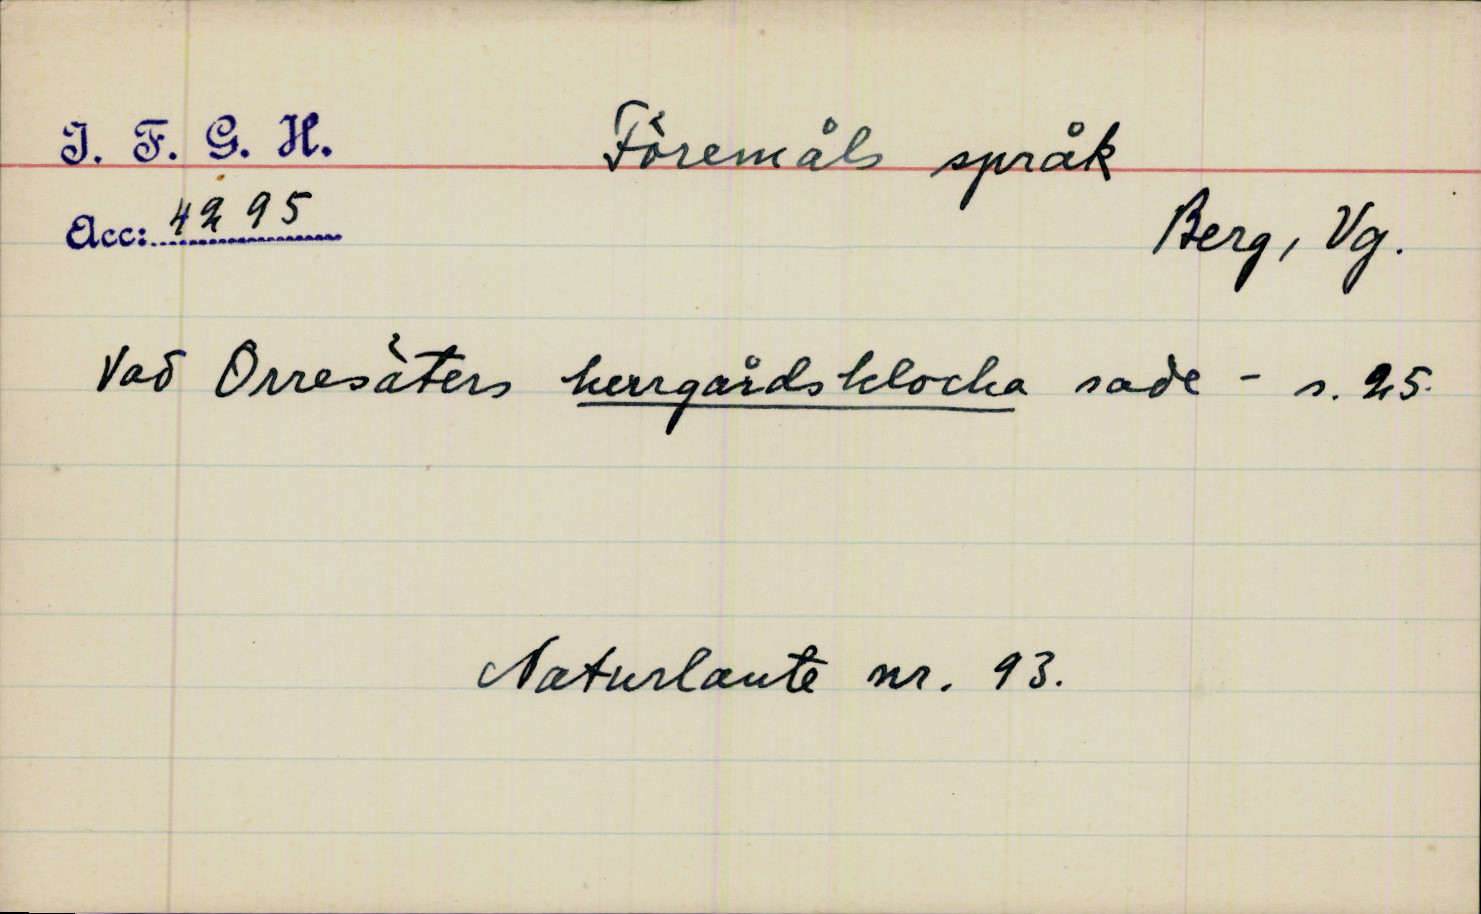 I. F. G. H.
Föremåls språk
Acc: 4295
Berg, Vg.
Vad Orresäters herrgårdsklocka sade - s. 25.
Naturlaute nr. 93.